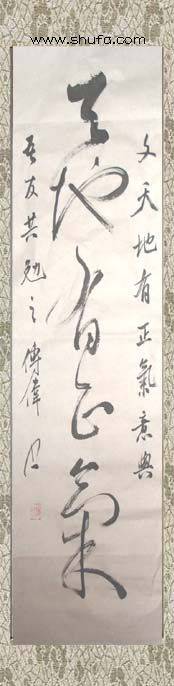 www.shufa.com
文天地有正氣意與
天地有正氣
吾友共勉之傅偉